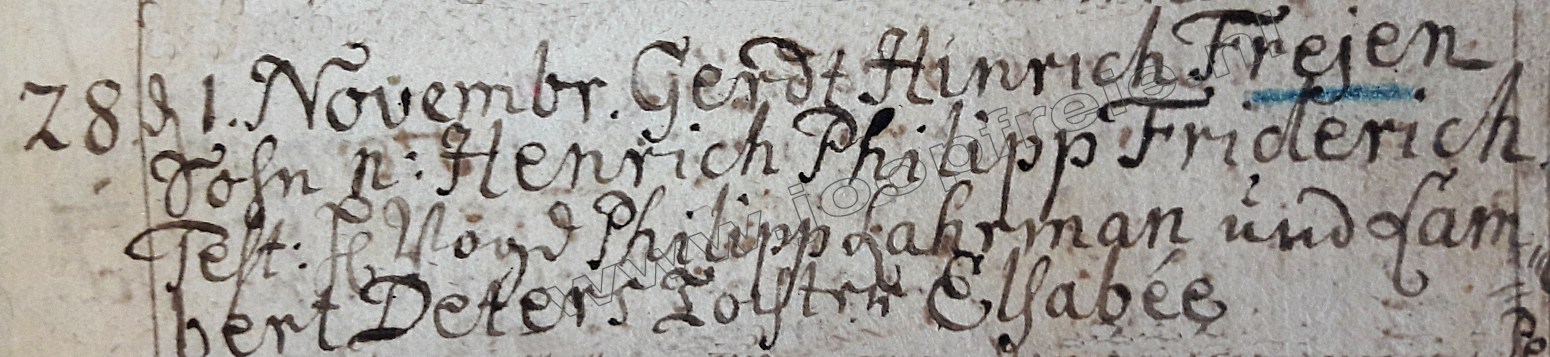 28. d 1. Novembr. Gerdt Hinrich Frejen
Sohn n: Henrich Philipp Friderich.
Test: H Vogd Philipp Lahrman und Lam=
bert Deters Tochter Elsabée
www.jospfreie.nl